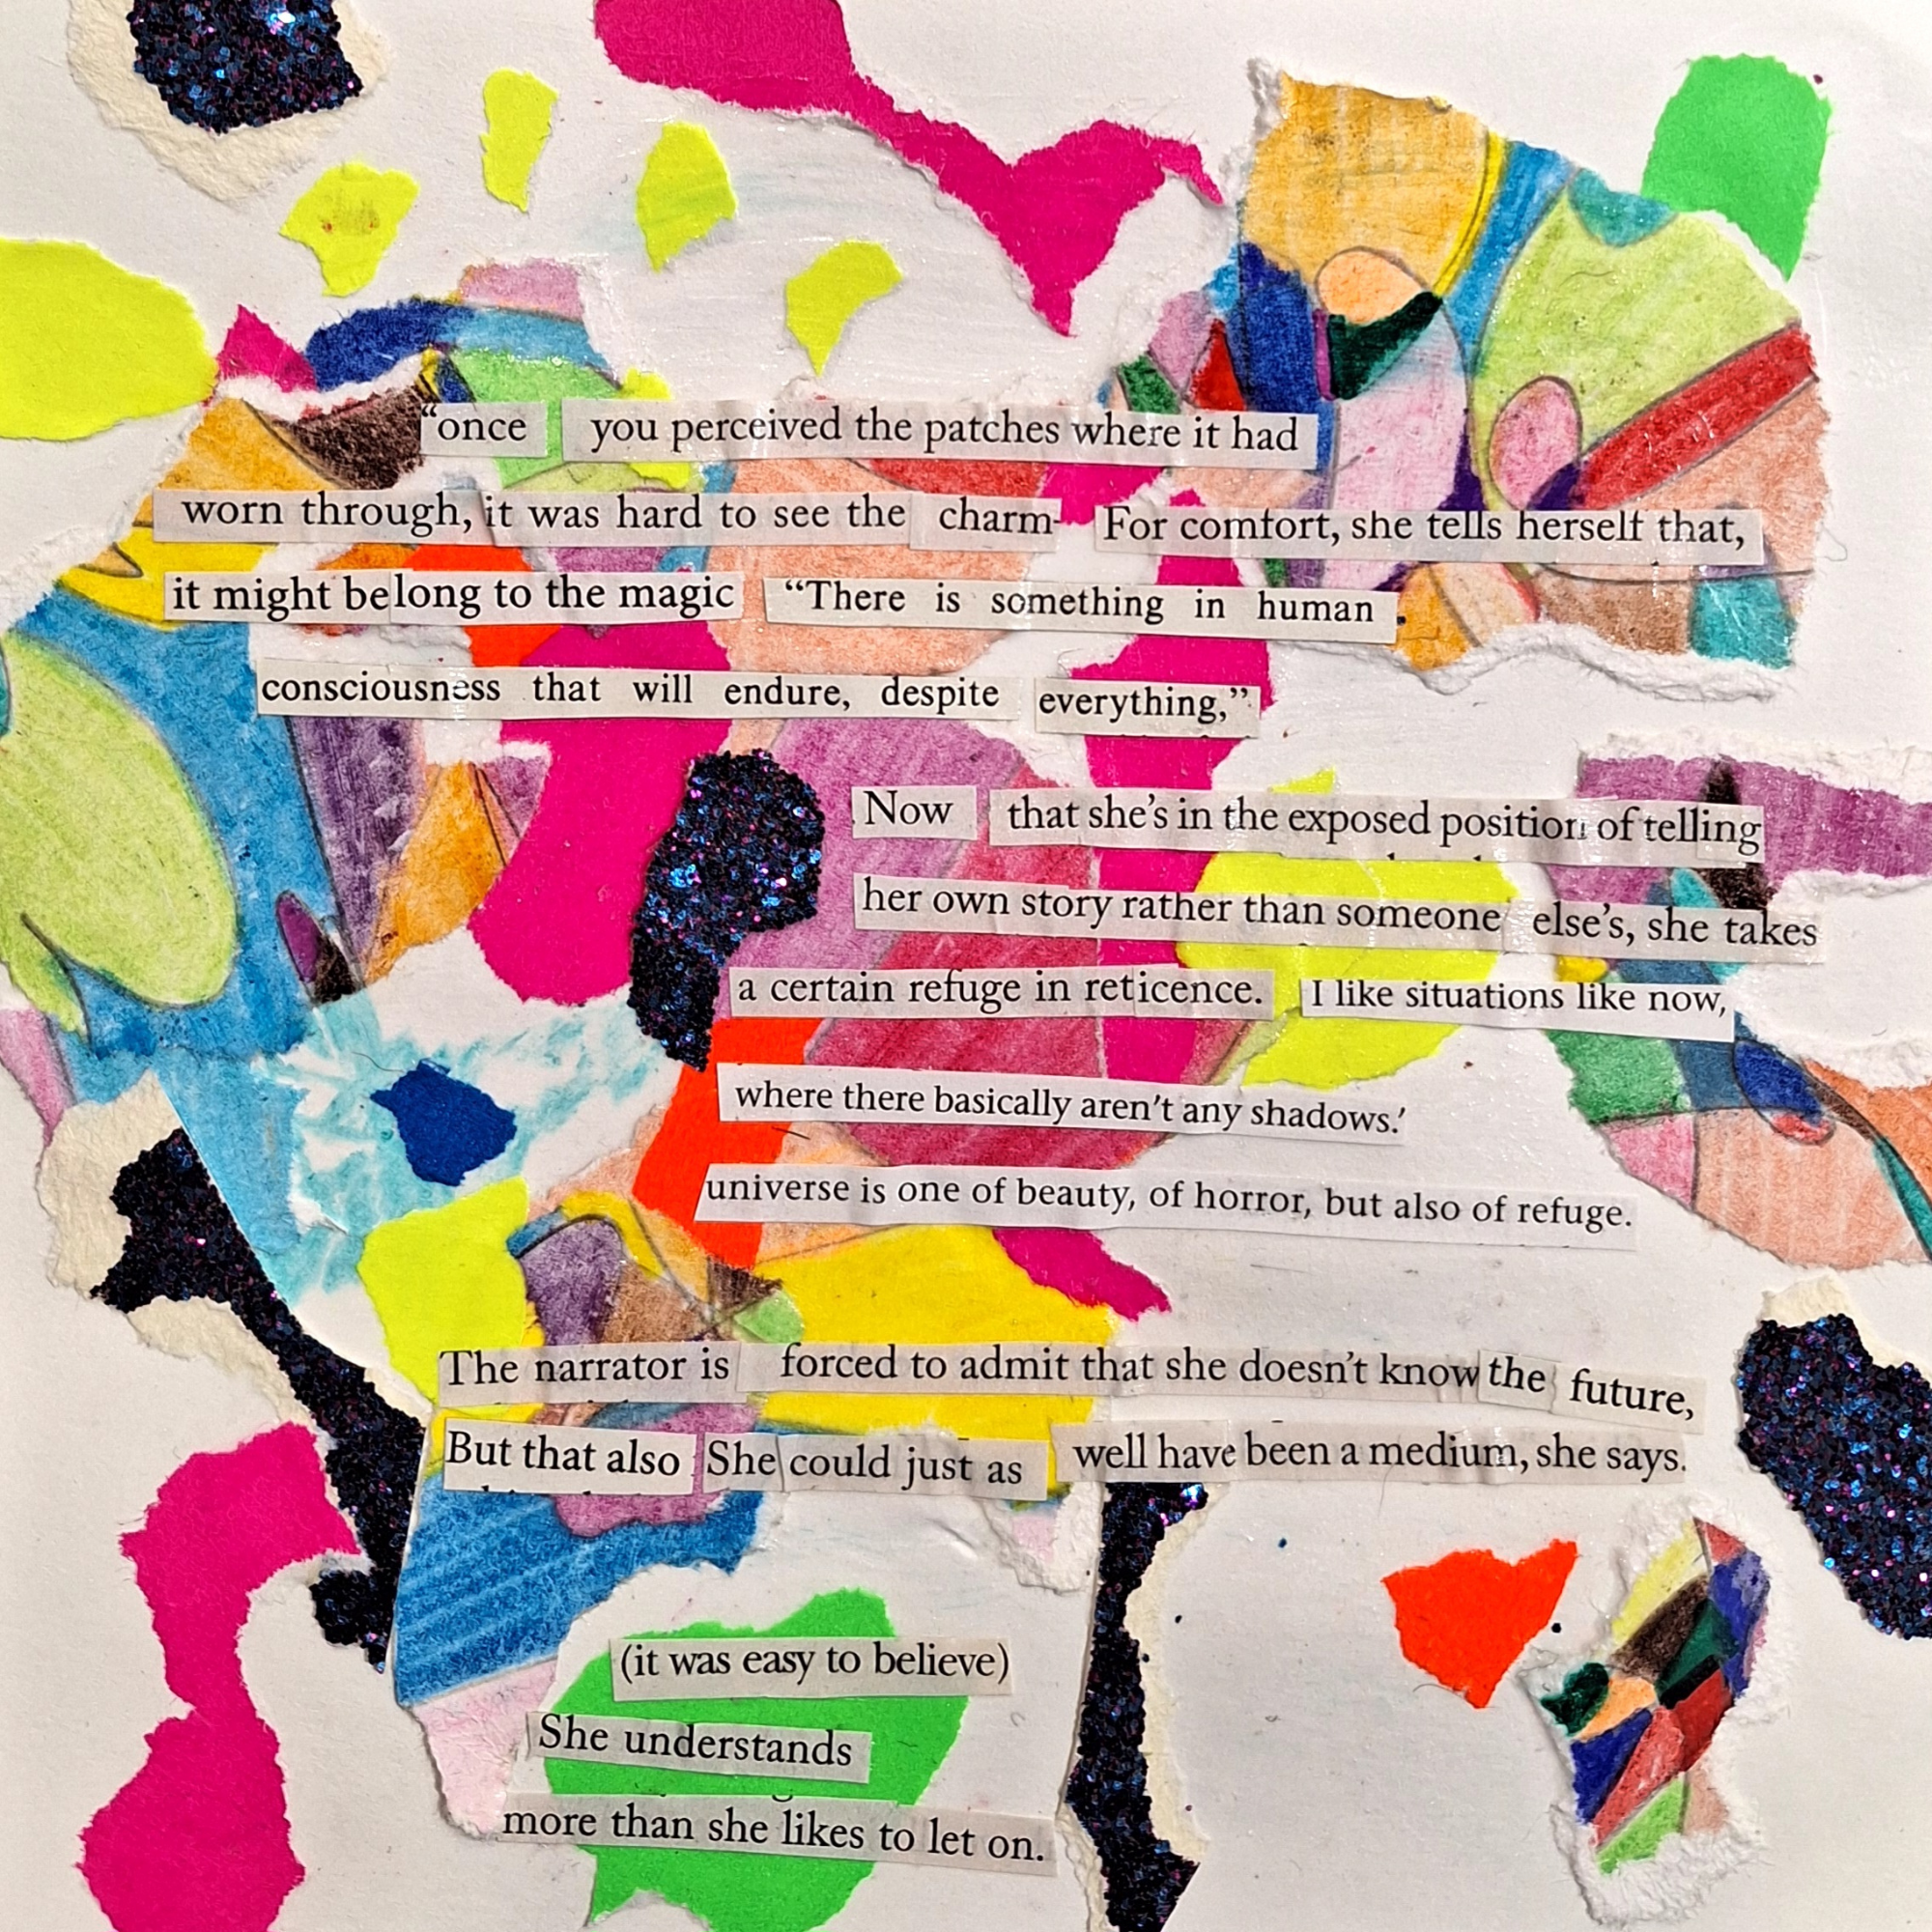 “once you perceived the patches where it had
worn through, it was hard to see the charm- For comfort, she tells herself that,
it might belong to the magic “There is something in human
consciousness that will endure, despite everything,”
Now that she’s in the exposed position of telling
her own story rather than someone else’s, she takes
a certain refuge in reticence. I like situations like now,
where there basically aren’t any shadows.’
universe is one of beauty, of horror, but also of refuge.
The narrator is forced to admit that she doesn’t know the future,
But that also She could just as well have been a medium, she says.
(it was easy to believe)
She understands
more than she likes to let on.